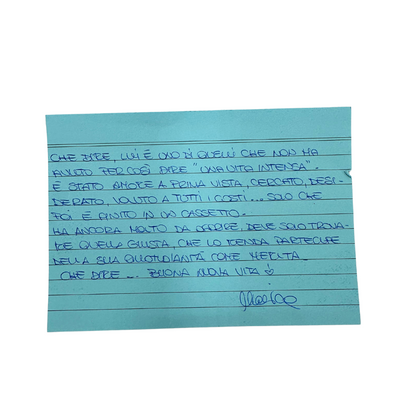 CHE DIRE, LUI È UNO DI QUELLI CHE NON HA
AVUTO PER COSÌ DIRE "UNA VITA INTENSA".
È STATO AMORE A PRIMA VISTA, CERCATO, DESI-
DERATO, VOLUTO A TUTTI I COSTI... SOLO CHE
POI È FINITO IN UN CASSETTO.
HA ANCORA MOLTO DA OFFRIRE, DEVE SOLO TROVA-
RE QUELLA GIUSTA, CHE LO RENDA PARTECIPE
DELLA SUA QUOTIDIANITÀ COME MERITA.
CHE DIRE... BUONA NUOVA VITA